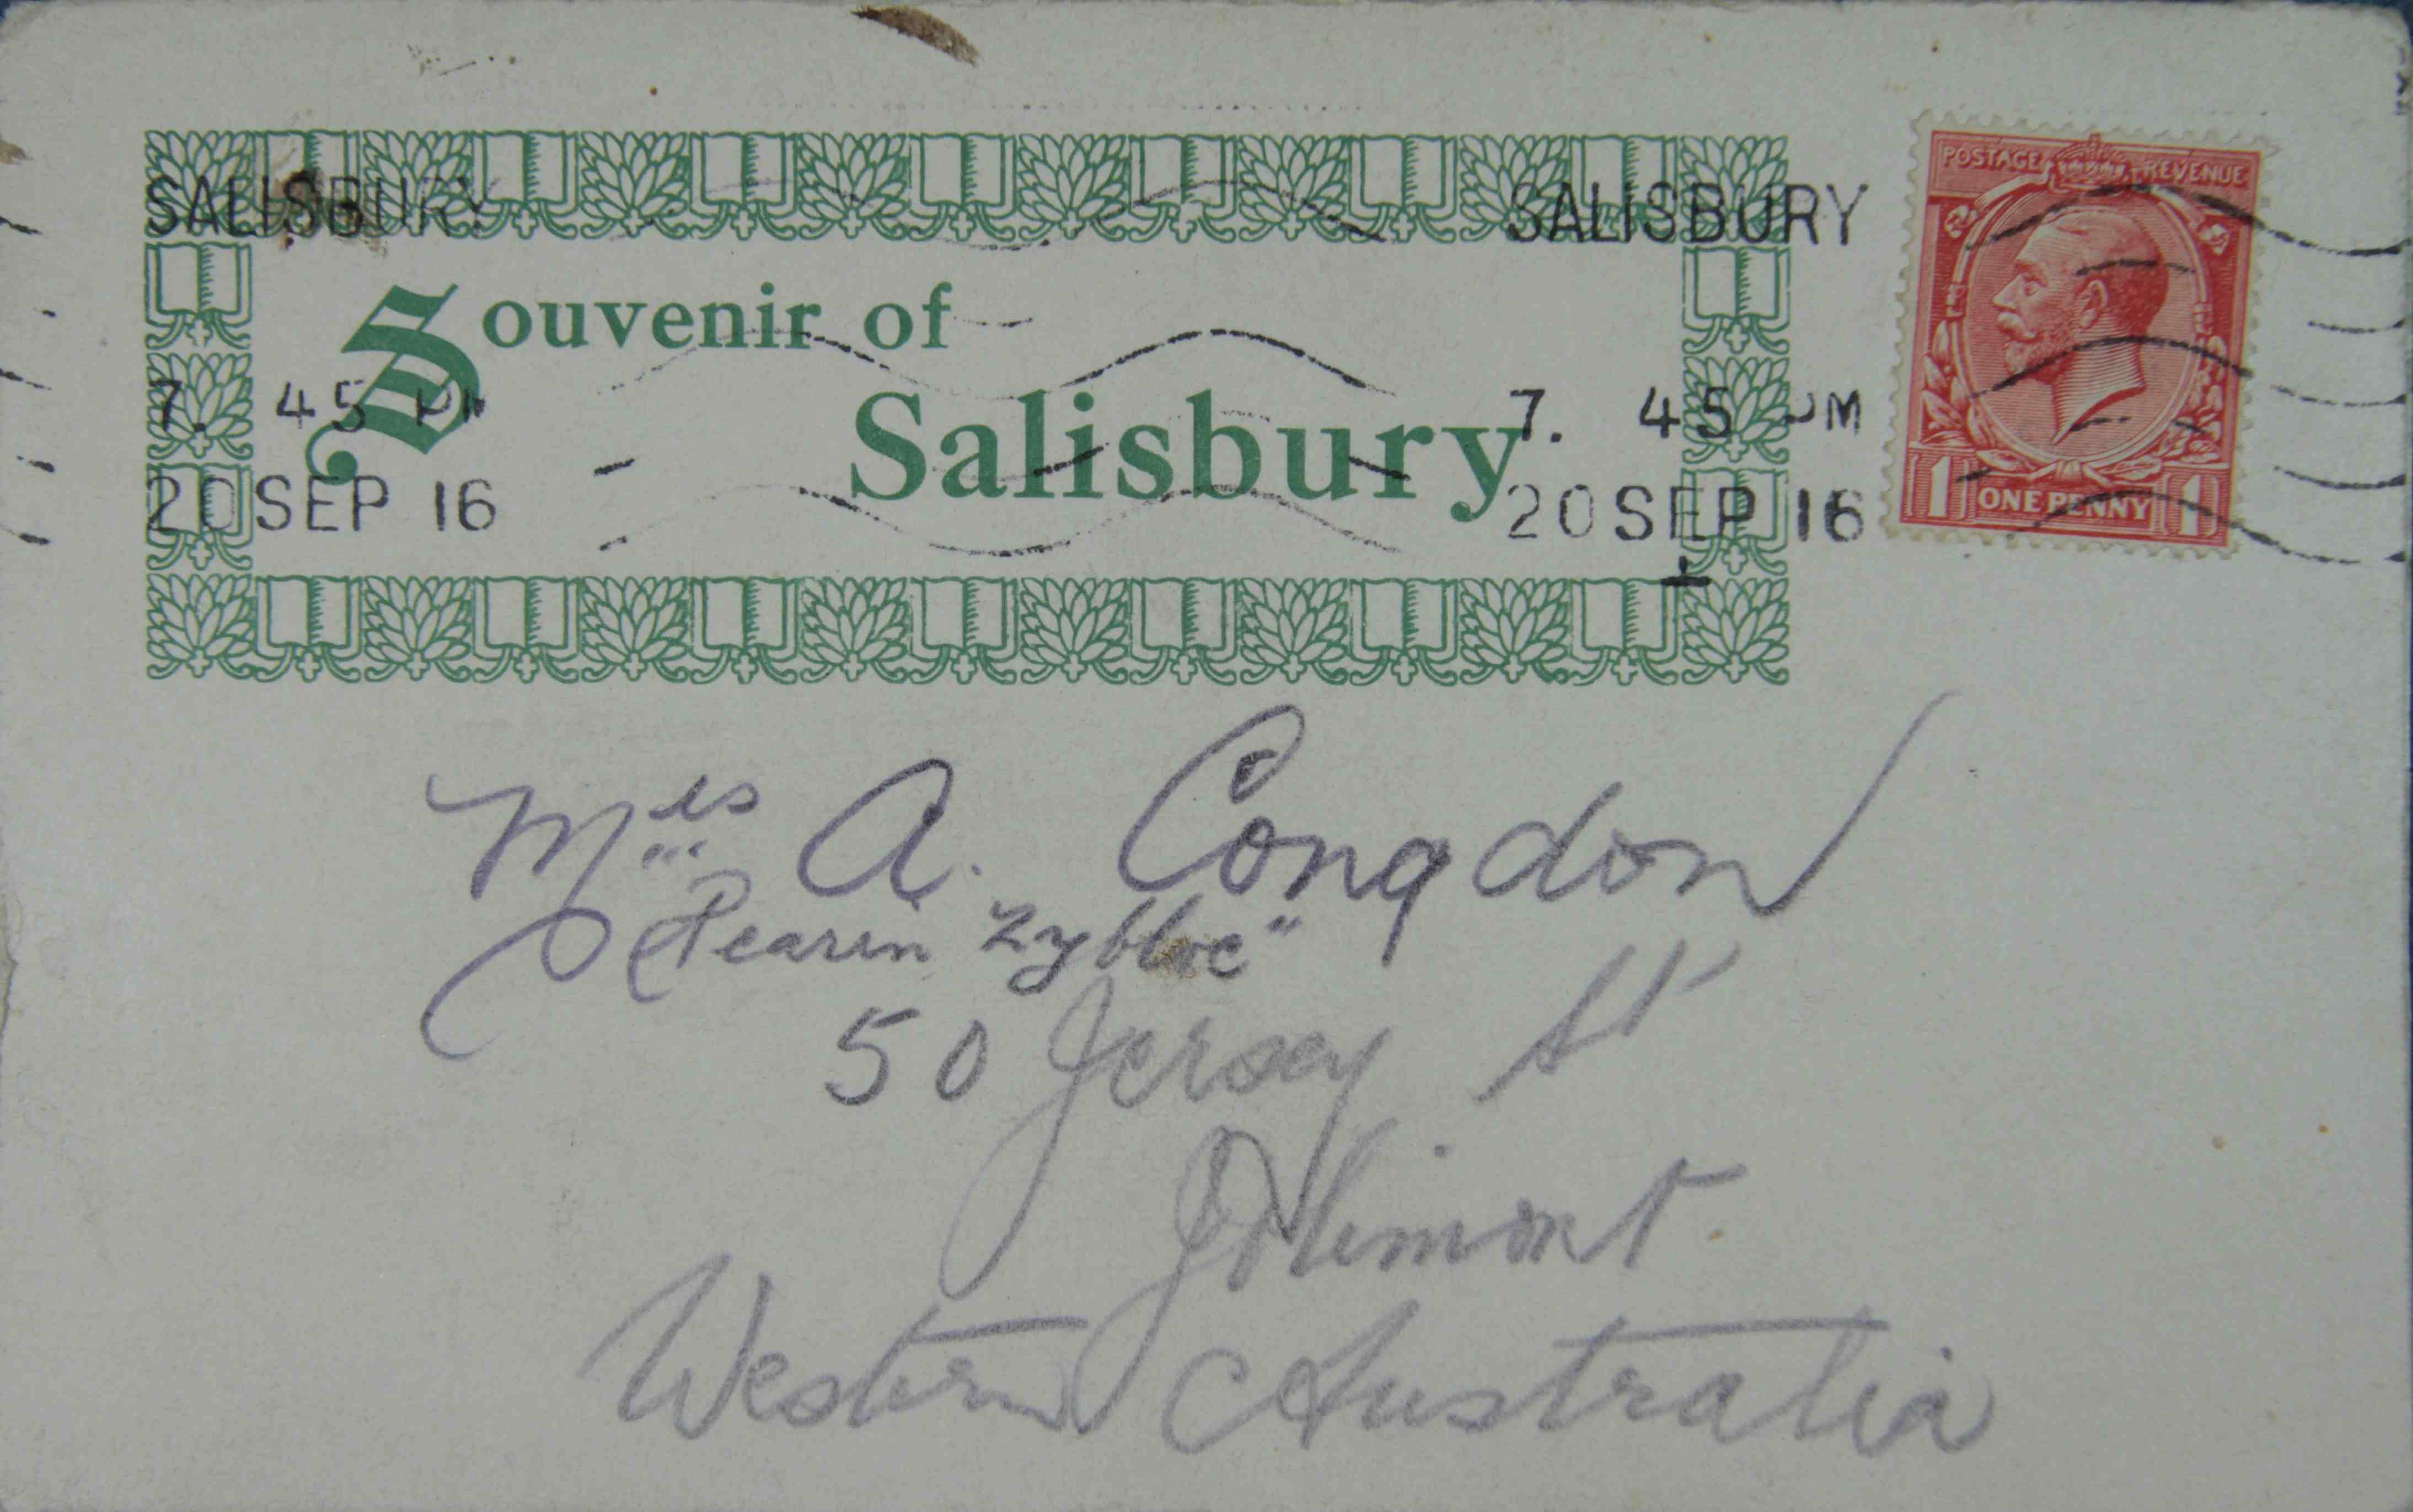 POSTAGE REVENUE
SALISBURY SALISBURY
Souvenir of
Salisbury
7. 45 PM 7. 45 PM
20 SEP 16 20 SEP 16
1 ONE PENNY 1
Mrs A. Congdon
50 Jersey St
Jolimont
Western Australia